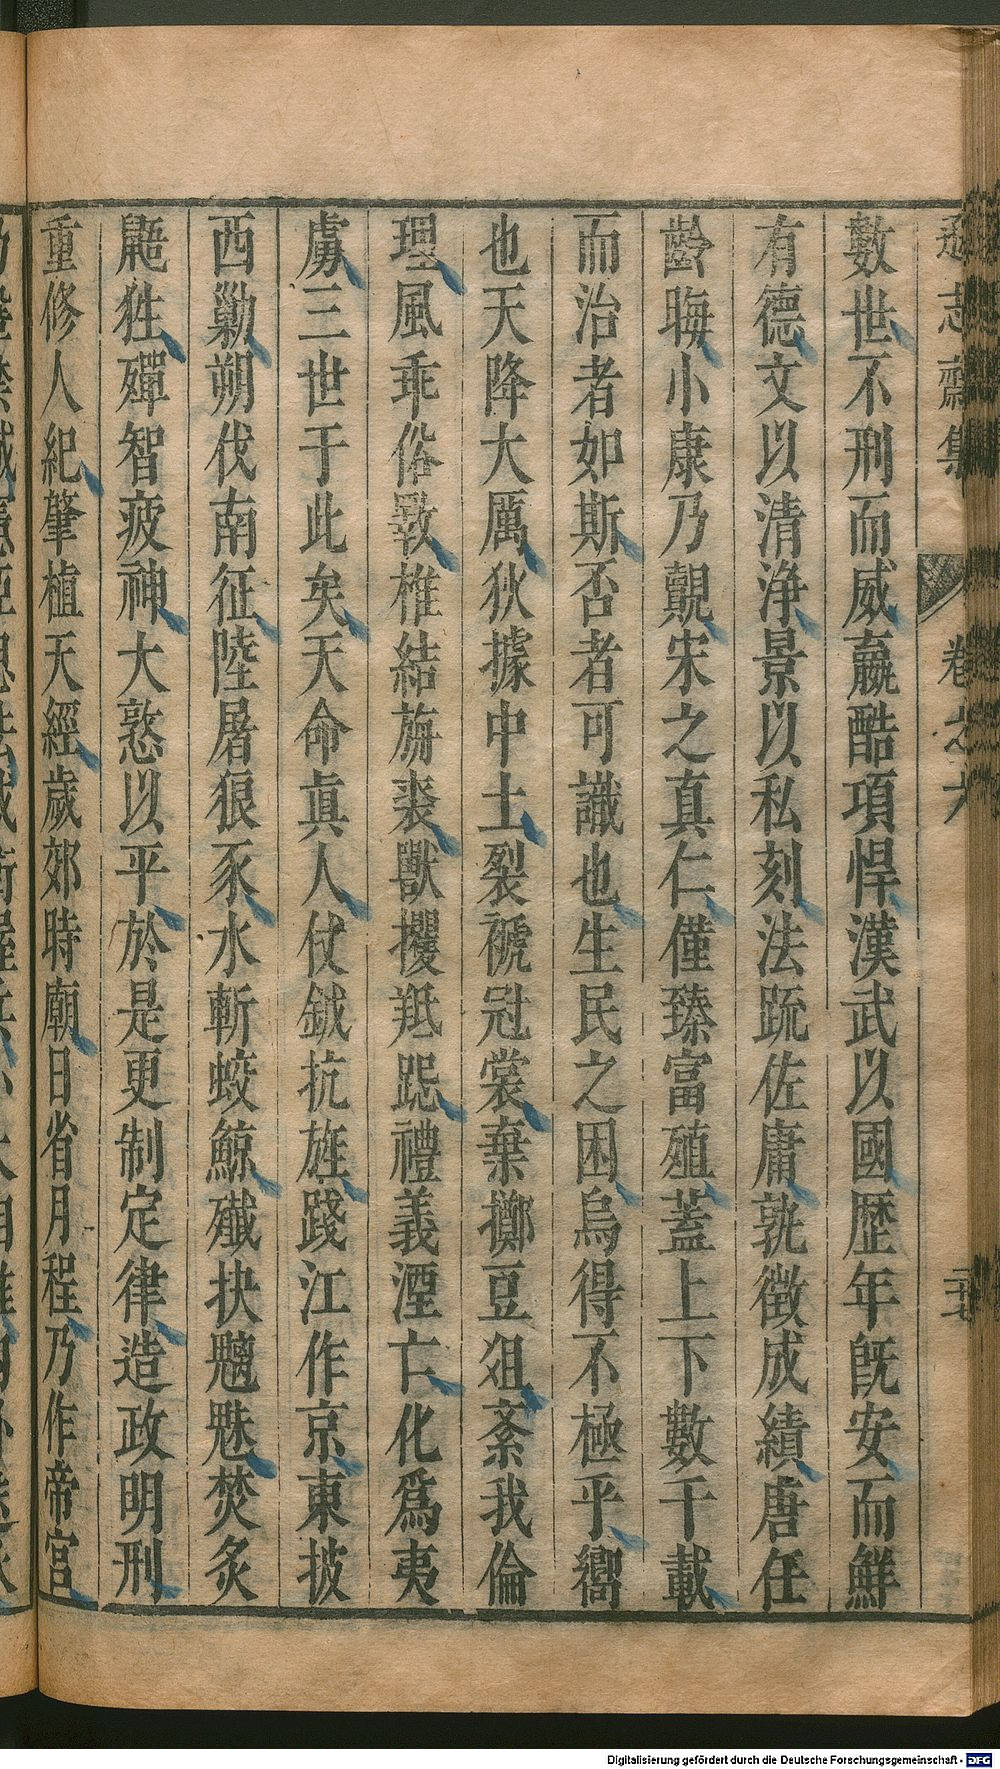 遜志齋集 卷之六 二十七
數世不刑而威嬴酷項悍漢武以國歷年旣安而鮮
有德文以清淨景以私刻法䟽佐庸孰徵成績唐任
齡晦小康乃覿宋之真仁僅臻富殖蓋上下數千載
而治者如斯否者可識也生民之困烏得不極乎嚮
也天降大厲狄據中土裂褫冠裳棄擲豆爼紊我倫
理風乖俗斁椎結旃裘獸攫羝跽禮義湮亡化爲夷
虜三世于此矣天命真人仗鉞抗旌踐江作京東披
西勦朔伐南征陸屠狼豕水斬蛟鯨殲抉魑魅焚炙
鼯狌殫智疲神大憝以平於是更制定律造政明刑
重修人紀肇植天經歲郊時廟日省月程乃作帝宫
Digitalisierung gefördert durch die Deutsche Forschungsgemeinschaft - DFG